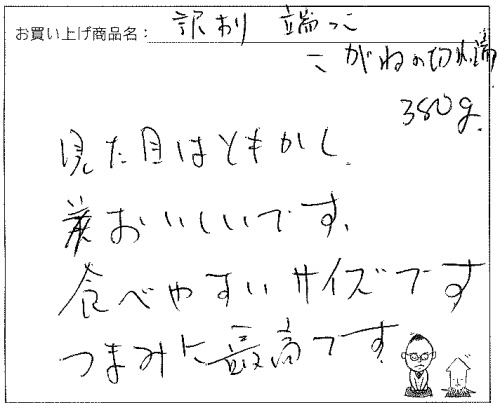 お買い上げ商品名： 訳あり 端っこ
こがねの切れ端
380g
見た目はともかく
おいしいです。
食べやすいサイズです
つまみに最高です